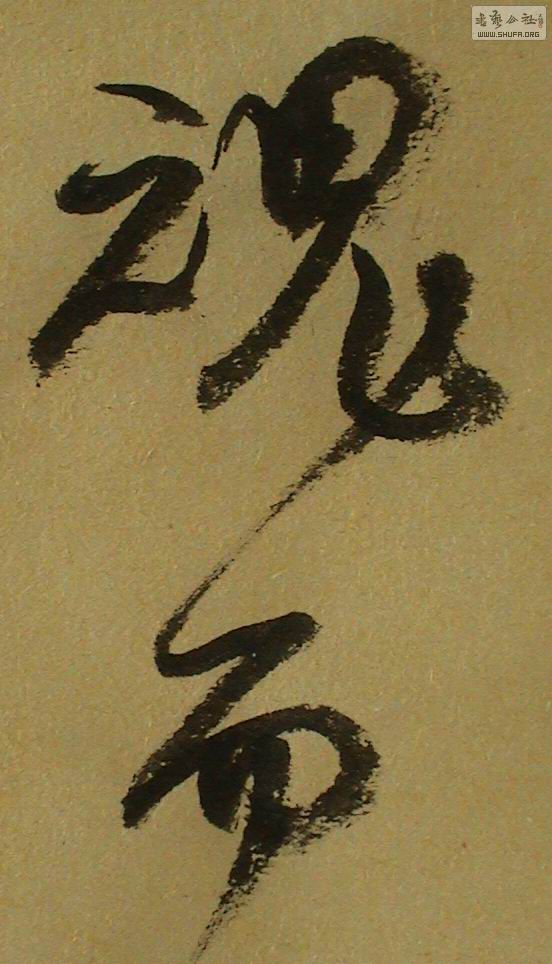 魂而
書藝公社
WWW.SHUFA.ORG